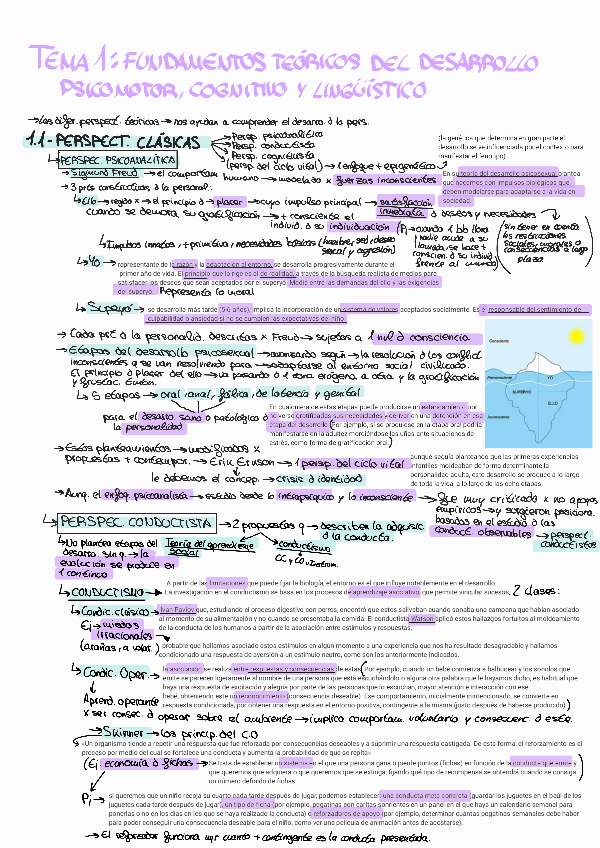 TEMA 1: FUNDAMENTOS TEÓRICOS DEL DESARROLLO
PSICOMOTOR, COGNITIVO Y LINGÜÍSTICO
→ Las difer. perspect. teóricas → nos ayudan a comprender el desarro. d la pers.
1.1 - PERSPECT. CLÁSICAS
→ Persp. psicoanalítica
→ Persp. conductista
→ Persp. cognitivista
(persp del ciclo vital) → 1 enfoque + epigenético
(la genética que determina en gran parte el
desarrollo se ve influenciada por el contexto para
manifestar el fenotipo)
PERSPEC PSICOANALÍTICA
→ Sigmund Freud → el comportam humano → modelado x fuerzas inconscientes
En su teoría del desarrollo psicosexual plantea
que nacemos con impulsos biológicos que
deben modelarse para adaptarse a la vida en
sociedad.
→ 3 prts constitutivas d la personal:
→ Ello → regido x → el principio d placer → cuyo impulso principal → satisfacción inmediata d deseos y necesidades
cuando se demora su gratificación → + consciente el individ. d su individuación
(Pj → cuando 1 bb llora y nadie acude a su llamada, se hace + conscien. d su individ frente al mundo)
(sin tener en cuenta las restricciones sociales, morales o consecuencias a largo plazo)
→ Impulsos innatos, + primitiva, necesidades básicas (hambre, sed, deseo sexual y agresión)
→ Yo → representante de la razón y la adaptación al entorno, se desarrolla progresivamente durante el
primer año de vida. El principio que lo rige es el de realidad, a través de la búsqueda realista de medios para
satisfacer los deseos que sean aceptados por el superyó. Media entre las demandas del ello y las exigencias
del superyo. Representa lo moral
→ Superyó → se desarrolla más tarde (5-6 años), implica la incorporación de un sistema de valores aceptados socialmente. Es el responsable del sentimiento de
culpabilidad o ansiedad si no se cumplen las expectativas del niño.
→ Cada prt d la personalid. descritas x Freud → sujetas a 1 nvl d consciencia
→ Etapas del desarrollo psicosexual → avanzando según → la resolución d los conflict.
inconscientes q se van resolviendo para → adaptarse al entorno social civilizado.
El principio d placer del ello → va pasando d 1 zona erógena a otra y la gratificación
y frustrac.
Consciente
Preconsciente
Inconsciente
YO
SUPERYÓ
ELLO
→ 5 etapas → oral, anal, fálica, de latencia y genital
para el desarro sano o patológico d la personalidad
En cualquiera de estas etapas puede producirse un estancamiento por
no verse gratificadas sus necesidades y derivar en una detención en esa
etapa del desarrollo. (Por ejemplo, si se produjese en la etapa oral podría
manifestarse en la adultez mordiéndose las uñas ante situaciones de
estrés, como forma de gratificación oral.)
→ Estos planteamientos → modificados x
propuestas + contempor. → Erik Erikson → 1 persp. del ciclo vital
le debemos el concep. → crisis d identidad
aunque seguía planteando que las primeras experiencias
infantiles moldeaban de forma determinante la
personalidad adulta, este desarrollo se produce a lo largo
de toda la vida, a lo largo de las ocho etapas.
→ Aunq. el enfoq. psicoanalista → estudio desde lo intrapsíquico y lo inconsciente → Sigue muy criticada x no apoyos
empíricos → y surgieron posiciona.
basados en el estudio d las
conduct observables → perspect. conductistas
→ PERSPEC. CONDUCTISTA → 2 propuestas q → describen la adquisic d la conducta.
→ Teoría del aprendizaje social
→ conductismo
→ No plantea etapas del
desarro. sin q → la
evolución se produce en
1 continuo
→ CONDUCTISMO →
A partir de las limitaciones que puede fijar la biología, el entorno es el que influye notablemente en el desarrollo.
La investigación en el conductismo se basa en los procesos de aprendizaje asociativo, que permite vincular sucesos. 2 clases:
→ Condic. clásico → Ivan Pavlov que, estudiando el proceso digestivo con perros, encontró que estos salivaban cuando sonaba una campana que habían asociado
al momento de su alimentación y no cuando se presentaba la comida. El conductista Watson aplicó estos hallazgos fortuitos al moldeamiento
de la conducta de los humanos a partir de la asociación entre estímulos y respuestas.
Ej → miedos irracionales
(arañas, a volar) → probable que hallamos asociado estos estímulos en algún momento a una experiencia que nos ha resultado desagradable y hallamos
condicionado una respuesta de aversión a un estímulo neutro, como son los anteriormente indicados.
→ Condic. Oper. → la asociación se realiza entre respuestas y consecuencias de estas. (Por ejemplo, cuando un bebé comienza a balbucear y los sonidos que
emite se parecen ligeramente al nombre de una persona que está escuchándolo o alguna otra palabra que le hayamos dicho, es habitual que
haya una respuesta de excitación y alegría por parte de las personas que lo escuchan, mayor atención e interacción con ese
bebé, obteniendo este un reconocimiento (consecuencia deseable). Ese comportamiento, inicialmente inintencionado, se convierte en
respuesta condicionada, por obtener una respuesta en el entorno positiva, contingente a la misma (justo después de haberse producido)
Aprend. operante
x ser consec. d operar sobre el ambiente → implica comportam. voluntario y consecuenc. d este.
→ Skinner → los princip. del C.O
«Un organismo tiende a repetir una respuesta que fue reforzada por consecuencias deseables y a suprimir una respuesta castigada. De esta forma, el reforzamiento es el
proceso por medio del cual se fortalece una conducta y aumenta la probabilidad de que se repita»
(Ej economía d fichas → Se trata de establecer un sistema en el que una persona gana o pierde puntos (fichas) en función de la conducta que emite y
que queremos que adquiera o que queremos que se extinga, fijando qué tipo de recompensa se obtendrá cuando se consiga
un número definido de fichas.
Pj → si queremos que un niño recoja su cuarto cada tarde después de jugar, podemos establecer una conducta-meta concreta (guardar los juguetes en el baúl de los
juguetes cada tarde después de jugar), un tipo de ficha (por ejemplo, pegatinas con caritas sonrientes en un panel en el que haya un calendario semanal para
ponerlas o no en los días en los que se haya realizado la conducta) o reforzadores de apoyo (por ejemplo, determinar cuántas pegatinas semanales debe haber
para poder conseguir una consecuencia deseable para el niño, como ver una película de animación antes de acostarse).
→ El reforzador funciona mjr cuanto + contingente es la conducta presentada.